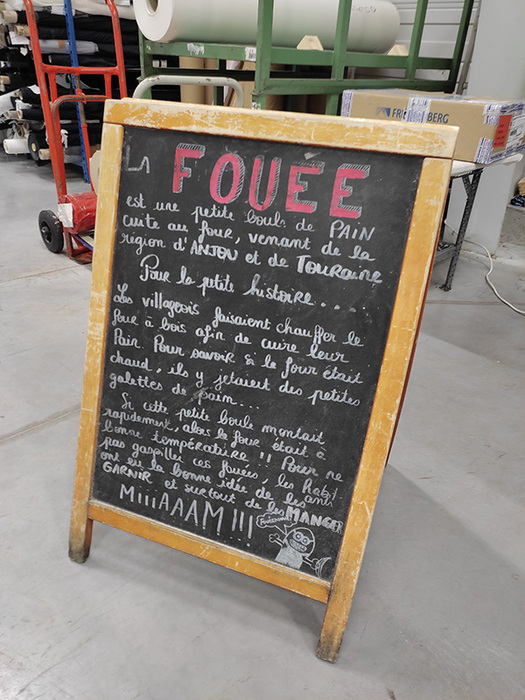 LA FOUÉE
est une petite boule de PAIN
cuite au four, venant de la
région d'ANJOU et de TOURAINE
Pour la petite histoire....
Les villageois faisaient chauffer le
four à bois afin de cuire leur
Pain. Pour savoir si le four était
chaud, ils y jetaient des petites
galettes de pain...
Si cette petite boule montait
rapidement, alors le four était à
bonne température !! Pour ne
pas gaspiller ces fouées, les habi
ont eu la bonne idée de les
tants
GARNIR et surtout de les MANGER
MiiiAAAM !!!